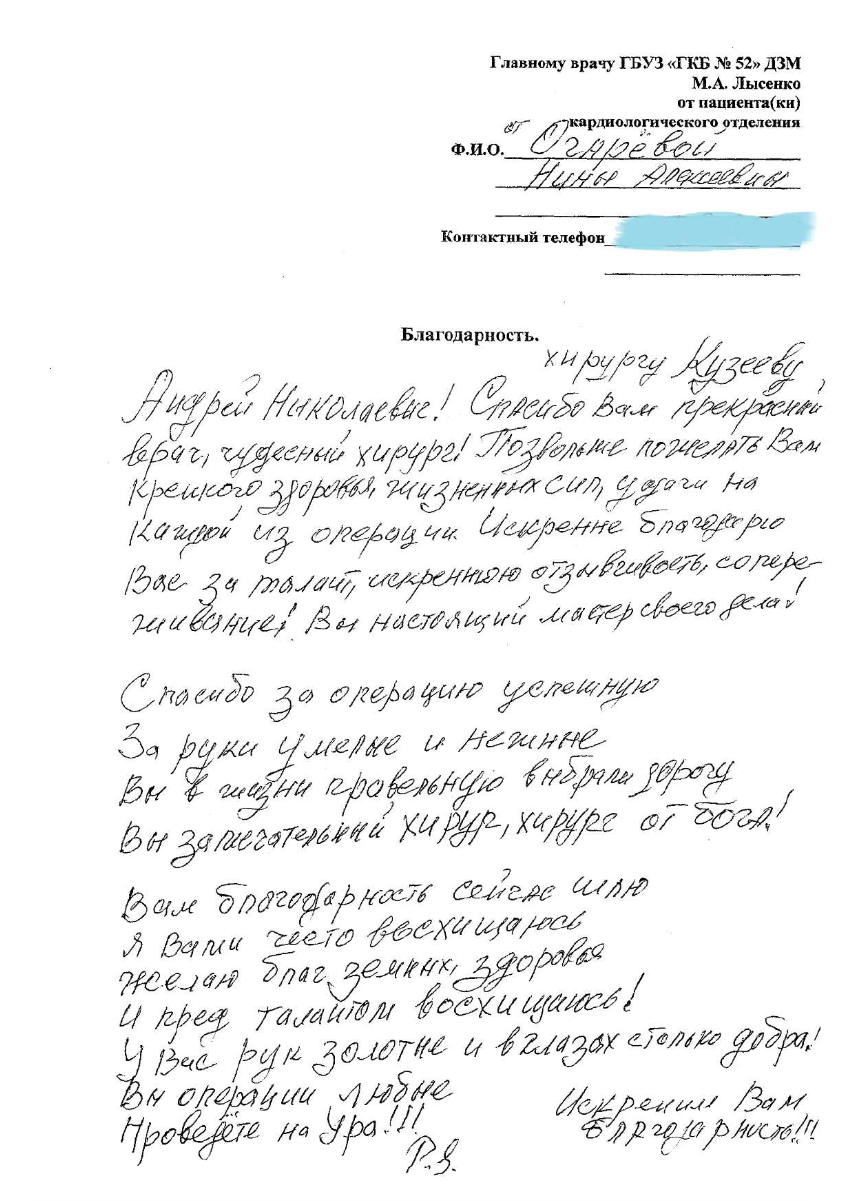 Главному врачу ГБУЗ «ГКБ № 52» ДЗМ
М.А. Лысенко
от пациента(ки)
кардиологического отделения
от
Ф.И.О. Огарёвой
Нины Алексеевны
Контактный телефон
Благодарность.
хирургу Кузееву
Андрей Николаевич! Спасибо Вам прекрасный
врач, чудесный хирург! Позвольте пожелать Вам
крепкого здоровья, жизненных сил, удачи на
каждой из операции. Искренне благодарю
Вас за талант, искреннюю отзывчивость, сопере-
живание! Вы настоящий мастер своего дела!
Спасибо за операцию успешную
За руки умелые и нежные
Вы в жизни правельную выбрали дорогу
Вы замечательный хирург, хирург от бога!
Вам благодарность сейчас шлю
Я Вами често восхищаюсь
Желаю благ земных, здоровья
И пред талантом восхищаюсь!
У Вас рук золотые и в глазах столько добра!
Вы операции любые
Проведёте на Ура!!!
Искренне Вам
Благодарность!!!